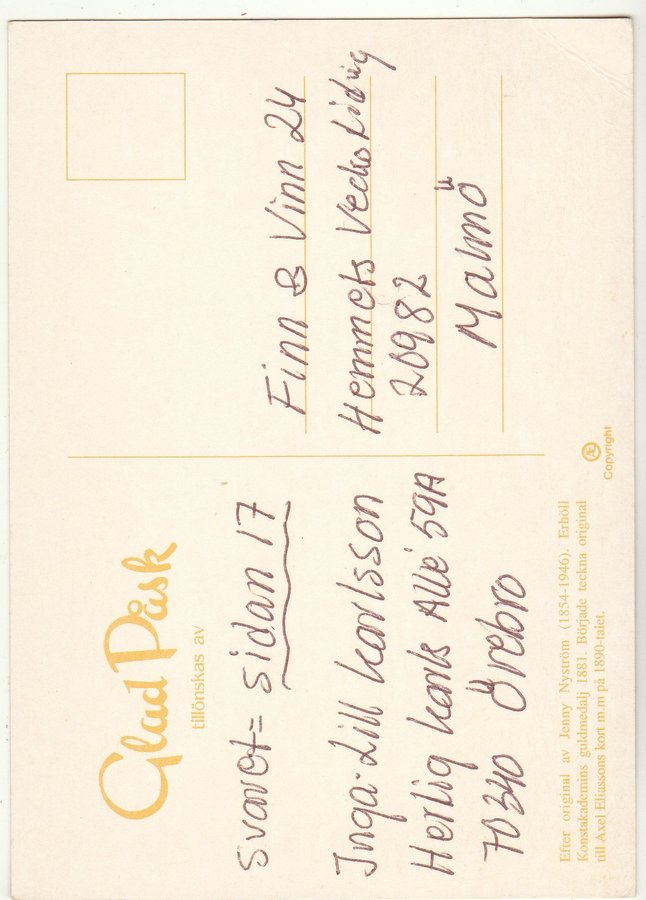 Glad Påsk
tillönskas av
Svaret = sidan 17
Inga-Lill Karlsson
Hertig Karls Allé 59A
70340 Örebro
Efter original av Jenny Nyström (1854-1946). Erhöll
Konstakademins guldmedalj 1881. Började teckna original
till Axel Eliassons kort m.m på 1890-talet.
Finn & Vinn 24
Hemmets Veckotidnig
20982
Malmö
Æ
Copyright